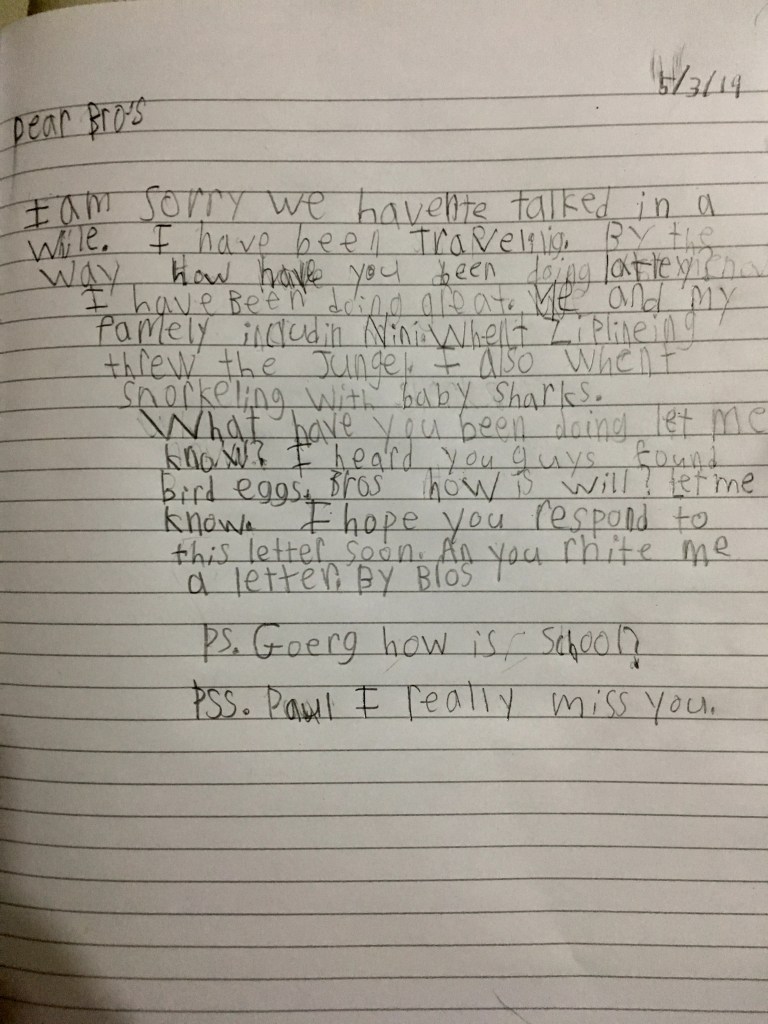 5/3/19
Dear Bro's
I am sorry we havente talked in a
wile. I have been Travelnig. By the
way How have you been doing
I have Been doing great. Me and my
Famely includin Nini Whent Ziplineing
threw the Jungel. I also When t
snorkeling with baby sharks.
What have you been doing let me
know? I heard you guys found
Bird eggs. Bros how is Will? let me
know. I hope you respond to
this letter soon. An you rhite me
a letter. By Bros
PS. Goerg how is school?
PSS. Paul I really miss you.